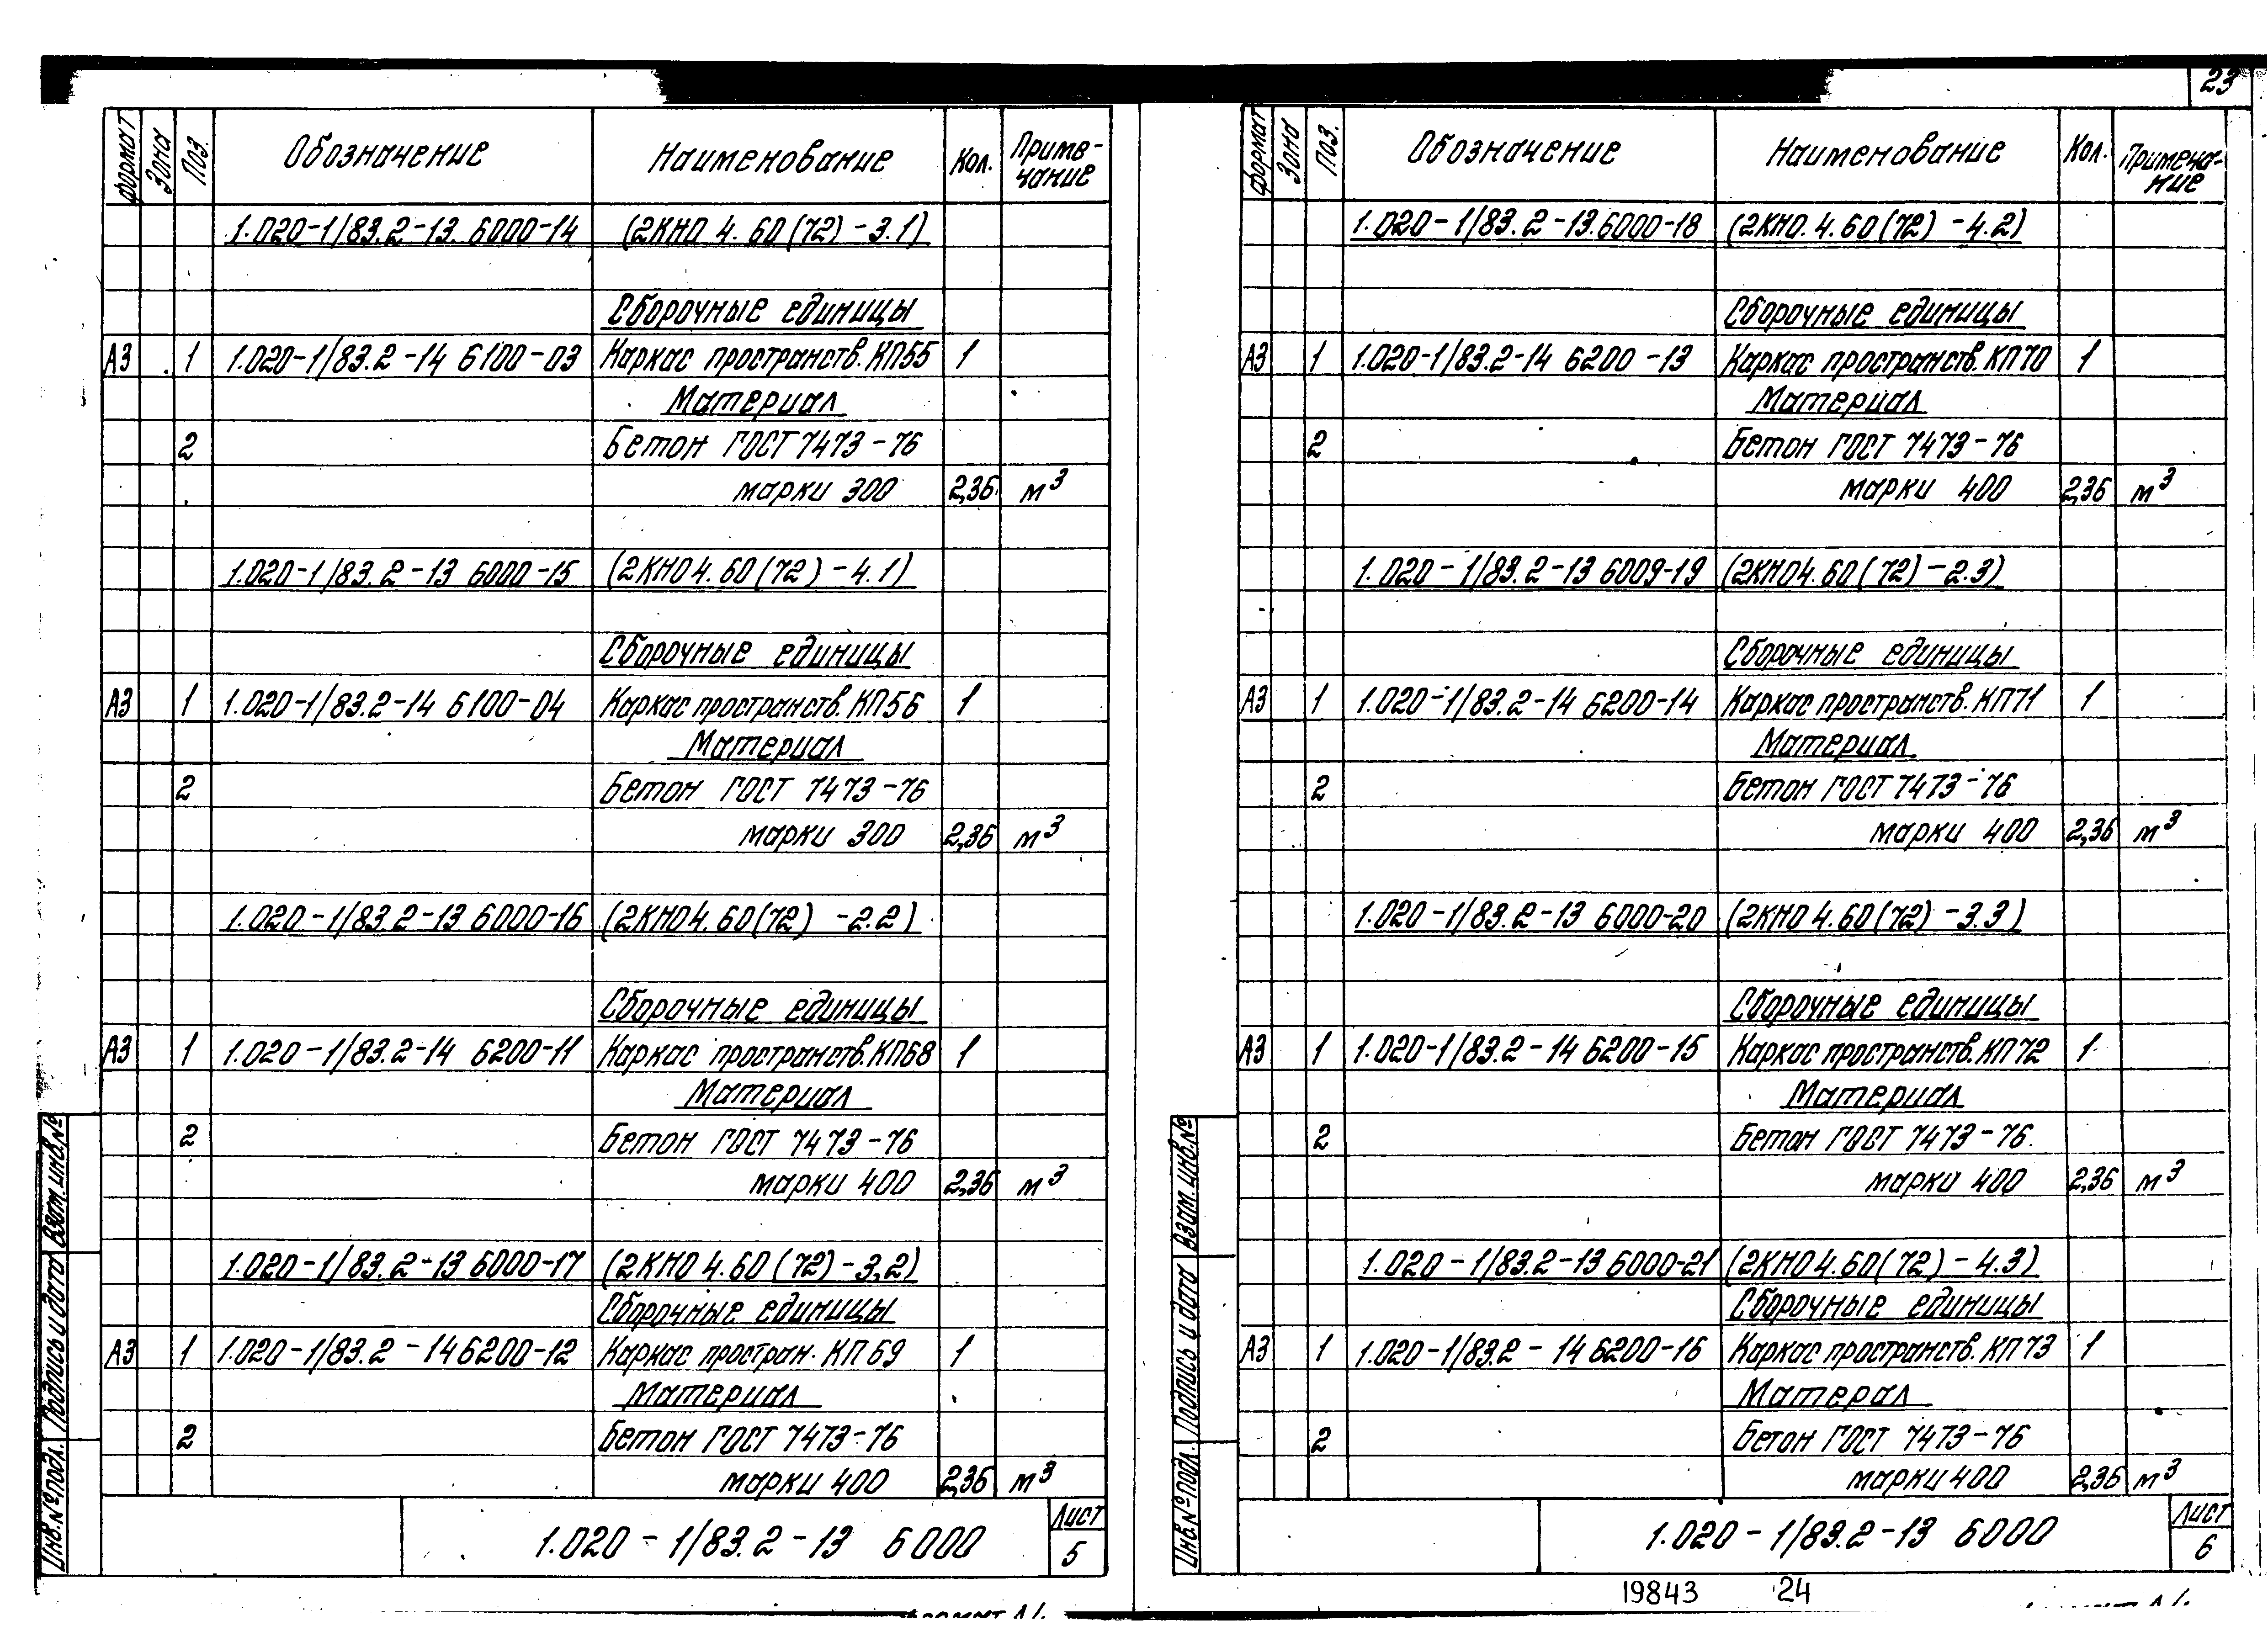 23
формат Зона Поз. Обозначение Наименование Кол. Приме-чание
1.020-1/83.2-13. 6000-14 (2КНО 4.60(72)-3.1)
Сборочные единицы
А3 1 1.020-1/83.2-14 6100-03 Каркас пространств. КП55 1
Материал
2 Бетон ГОСТ 7473-76
марки 300 2,36 м³
1.020-1/83.2-13 6000-15 (2КНО4.60(72)-4.1)
Сборочные единицы
А3 1 1.020-1/83.2-14 6100-04 Каркас пространств. КП56 1
Материал
2 Бетон ГОСТ 7473-76
марки 300 2,36 м³
1.020-1/83.2-13 6000-16 (2КНО4.60(72)-2.2)
Сборочные единицы
А3 1 1.020-1/83.2-14 6200-11 Каркас пространств. КП68 1
Материал
2 Бетон ГОСТ 7473-76
марки 400 2,36 м³
1.020-1/83.2-13 6000-17 (2КНО 4.60(72)-3,2)
Сборочные единицы
А3 1 1.020-1/83.2-14 6200-12 Каркас простран. КП 69 1
Материал
2 Бетон ГОСТ 7473-76
марки 400 2,36 м³
Инв.№ подл. Подпись и дата Взам. инв.№
1.020-1/83.2-13 6000
Лист
5
формат Зона Поз. Обозначение Наименование Кол. Примеча-ние
1.020-1/83.2-13.6000-18 (2КНО.4.60(72)-4.2)
Сборочные единицы
А3 1 1.020-1/83.2-14 6200-13 Каркас пространств. КП70 1
Материал
2 Бетон ГОСТ 7473-76
марки 400 2,36 м³
1.020-1/83.2-13 6009-19 (2КНО4.60(72)-2.3)
Сборочные единицы
А3 1 1.020-1/83.2-14 6200-14 Каркас пространств. КП71 1
Материал
2 Бетон ГОСТ 7473-76
марки 400 2,36 м³
1.020-1/83.2-13 6000-20 (2КНО4.60(72)-3.3)
Сборочные единицы
А3 1 1.020-1/83.2-14 6200-15 Каркас пространств. КП72 1
Материал
2 Бетон ГОСТ 7473-76
марки 400 2,36 м³
1.020-1/83.2-13 6000-21 (2КНО4.60(72)-4.3)
Сборочные единицы
А3 1 1.020-1/83.2-14 6200-16 Каркас пространств. КП73 1
Матерал
2 Бетон ГОСТ 7473-76
марки 400 2,36 м³
Инв.№ подл. Подпись и дата Взам. инв.№
1.020-1/83.2-13 6000
Лист
6
19843 24